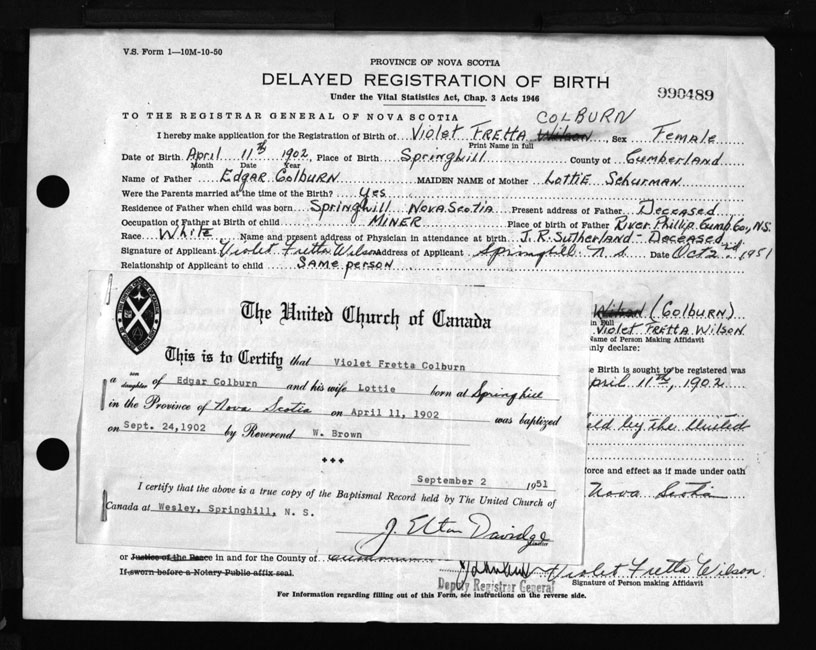 V.S. Form 1—10M-10-50
PROVINCE OF NOVA SCOTIA
DELAYED REGISTRATION OF BIRTH
Under the Vital Statistics Act, Chap. 3 Acts 1946
990489
TO THE REGISTRAR GENERAL OF NOVA SCOTIA COLBURN
I hereby make application for the Registration of Birth of Violet FRETTA Wilson Sex Female
Print Name in full
Date of Birth April 11th 1902 Place of Birth Springhill County of Cumberland
Month Date Year
Name of Father Edgar Colburn MAIDEN NAME of Mother Lottie Schurman
Were the Parents married at the time of the Birth? Yes
Residence of Father when child was born Springhill Nova Scotia Present address of Father Deceased
Occupation of Father at Birth of child MINER Place of birth of Father River Phillip Cumb Co, N.S.
Race White Name and present address of Physician in attendance at birth J.R. Sutherland - Deceased
Signature of Applicant Violet Fretta Wilson Address of Applicant Springhill N.S. Date Oct 2nd 1951
Relationship of Applicant to child SAME person
Wilson (Colburn)
in Full
Violet FRETTA WILSON
Name of Person Making Affidavit
nly declare:
e Birth is sought to be registered was
pril 11th, 1902
eld by the United
force and effect as if made under oath
Nova Scotia
The United Church of Canada
This is to Certify that Violet Fretta Colburn
son
a daughter of Edgar Colburn and his wife Lottie born at Springhill
in the Province of Nova Scotia on April 11, 1902 was baptized
on Sept. 24,1902 by Reverend W. Brown
+++
September 2 1951
I certify that the above is a true copy of the Baptismal Record held by The United Church of
Canada at Wesley, Springhill, N. S.
J. Elton Davidge
or Justice of the Peace in and for the County of
If sworn before a Notary Public affix seal.
Violet Fretta Wilson.
Deputy Registrar General
Signature of Person making Affidavit
For Information regarding filling out of this Form, see instructions on the reverse side.